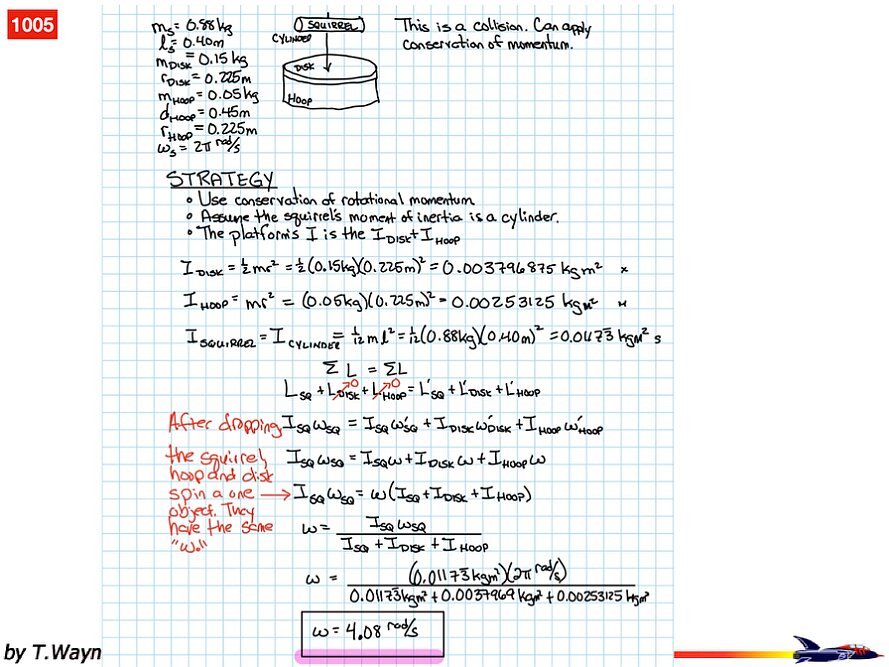 1005
m_s = 0.88 kg
l_s = 0.40m
m_DISK = 0.15 kg
r_DISK = 0.225m
m_HOOP = 0.05 kg
d_HOOP = 0.45m
r_HOOP = 0.225m
ω_s = 2π rad/s
SQUIRREL
CYLINDER
DISK
HOOP
This is a collision. Can apply
conservation of momentum.
STRATEGY
• Use conservation of rotational momentum
• Assume the squirrel's moment of inertia is a cylinder.
• The platform's I is the I_DISK + I_HOOP
I_DISK = ½mr² = ½(0.15kg)(0.225m)² = 0.003796875 kgm²
I_HOOP = mr² = (0.05kg)(0.225m)² = 0.00253125 kgm²
I_SQUIRREL = I_CYLINDER = 1/12 m l² = 1/12(0.88kg)(0.40m)² = 0.01173̅ kgm² s
Σ L = ΣL
L_SQ + L_DISK→0 + L_HOOP→0 = L'_SQ + L'_DISK + L'_HOOP
I_SQ ω_SQ = I_SQ ω'_SQ + I_DISK ω'_DISK + I_HOOP ω'_HOOP
I_SQ ω_SQ = I_SQ ω + I_DISK ω + I_HOOP ω
I_SQ ω_SQ = ω(I_SQ + I_DISK + I_HOOP)
After dropping
the squirrel,
hoop and disk
spin a one
object. They
have the same
"ω."
ω = I_SQ ω_SQ
I_SQ + I_DISK + I_HOOP
ω = (0.01173̅ kgm²)(2π rad/s)
0.01173̅ kgm² + 0.0037969 kgm² + 0.00253125 kgm²
ω = 4.08 rad/s
by T.Wayn